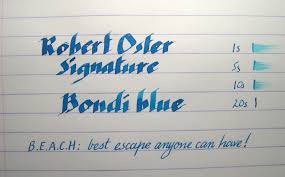 Robert Oster
Signature
Bondi blue
1s
5s
10s
20s
B.E.A.C.H: best escape anyone can have!